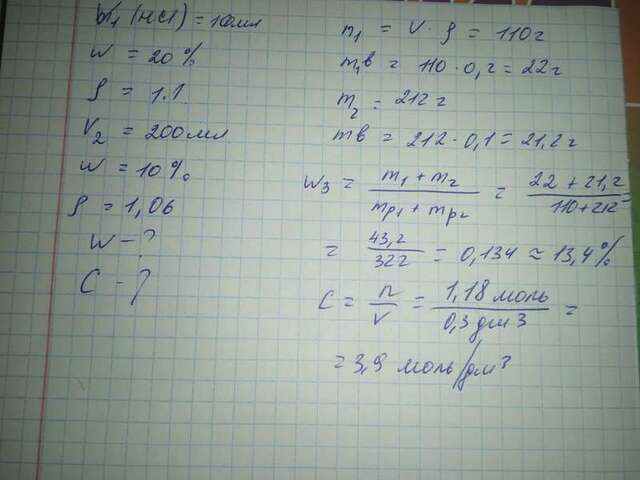 V₁ (HCl) = 100мл
w = 20%
ρ = 1.1.
V₂ = 200мл
w = 10%
ρ = 1,06
w - ?
C - ?
m₁ = V · ρ = 110г
m₁в = 110 · 0,2 = 22г
m₂ = 212г
mв = 212 · 0,1 = 21,2г
w₃ = (m₁ + m₂)/(mp₁ + mp₂) = (22 + 21,2)/(110+212) =
= 43,2/322 = 0,134 ≈ 13,4%
C = n/V = 1,18 моль/0,3 дм3 =
= 3,9 моль/дм³